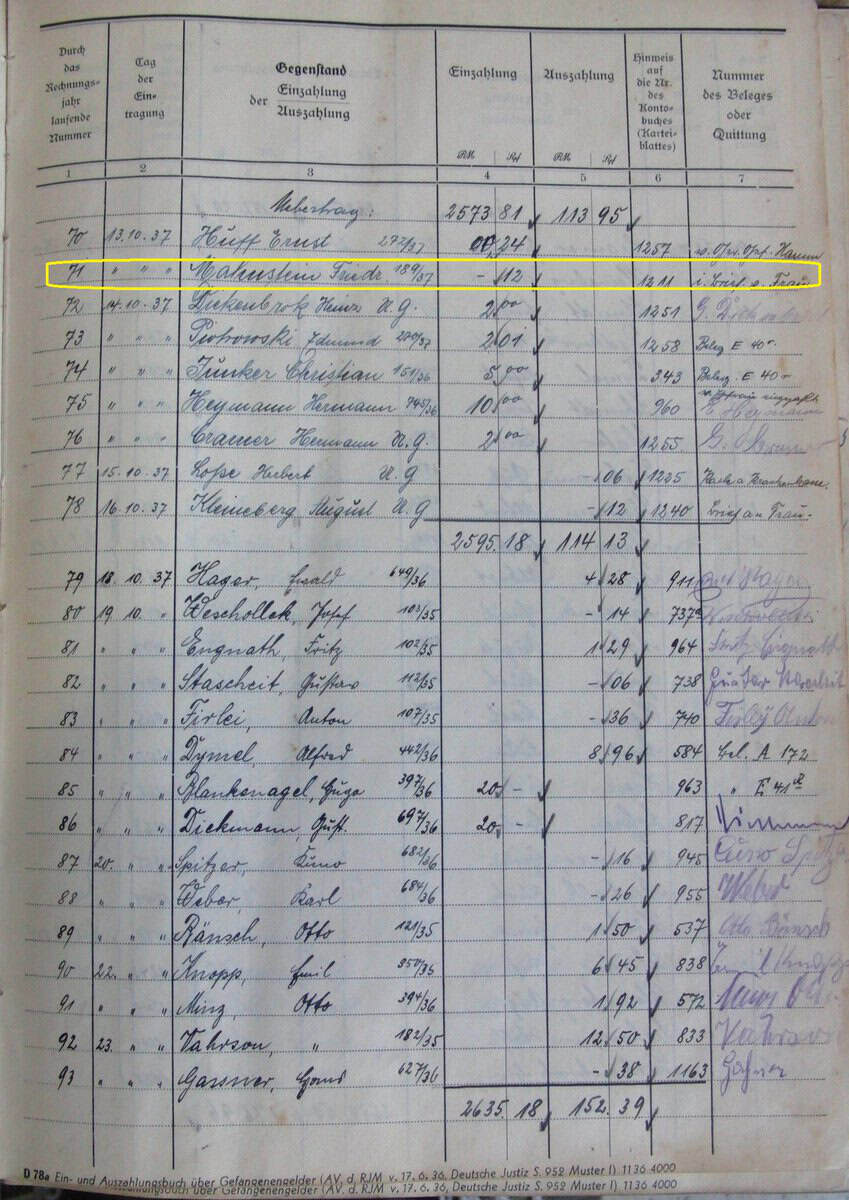 Durch das Rechnungsjahr laufende Nummer
Tag der Eintragung
Gegenstand der Einzahlung Auszahlung
Einzahlung
Auszahlung
Hinweis auf die Nr. des Kontobuches (Karteiblattes)
Nummer des Beleges oder Quittung
RM Rpf RM Rpf
1 2 3 4 5 6 7
Uebertrag: 2573 81 113 95
70 13.10.37 Huff Ernst 272/37 00,24 1257 Hamm
71 " " " Friedr. 189/37 - 12 1211 i. Brief a. Frau
72 14.10.37 Dickenbrok Heinz U.G. 2 00 1251
73 " " " Piotrowski Edmund 2 01 1258 Beleg E 40
74 " " " Junker Christian 151/36 5 00 343 Beleg E 40
75 " " " Heymann Hermann 745/36 10 00 960 Heymann
76 " " " Cramer Hermann U.G. 2 00 1255
77 15.10.37 Herbert U.G - 06 1225
78 16.10.37 Kleineberg, August U.G - 12 1240 Brief an Frau
2595.18 114 13
79 18.10.37 Hager, Ewald 649/36 4 28 911
80 19 10. " Josef 103/35 - 14 737a
81 " " " Engnath, Fritz 102/35 1 29 964 Fritz Engnath
82 " " " Stascheit, Gustav 112/35 - 06 738 Gustav
83 " " " Firlei, Anton 107/35 - 36 740 Anton
84 " " " Dymel, Alfred 442/36 8 96 584 Bel. A 172
85 " " " Blankenagel, Hugo 397/36 20 - 963 " E 41
86 " " " Dickmann, Gust. 697/36 20 - 817
87 20. " " Spitzer, Kuno 682/36 - 16 945 Cuno Spitzer
88 " " " Weber, Karl 684/36 - 26 955 Weber
89 " " " Ränsch, Otto 121/35 1 50 537 Otto Ränsch
90 22. " " Knopp, Emil 350/35 6 45 838 Emil Knopp
91 " " " Minz, Otto 394/36 1 92 572
92 23. " " Vahrson, " 182/35 12 50 833 Vahrson
93 " " " Gassner, 627/36 - 38 1163
2635.18 152.39
D 78a Ein- und Auszahlungsbuch über Gefangenengelder (AV. d. RJM v. 17. 6. 36, Deutsche Justiz S. 952 Muster I) 1136 4000
Auszahlungsbuch über Gefangenengelder (AV. d. RJM v. 17. 6. 36, Deutsche Justiz S. 952 Muster I) 1136 4000